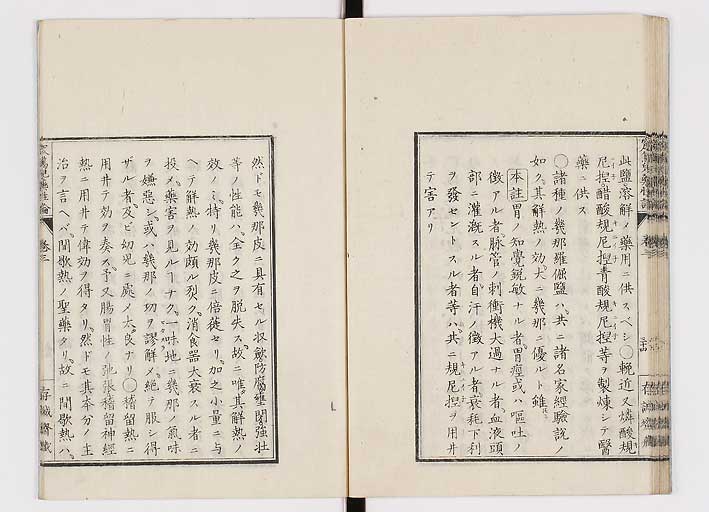 此鹽溶解ノ藥用ニ供スベシ〇輓近又燐酸規
尼捏醋酸規尼捏青酸規尼捏等ヲ製煉シテ醫
藥ニ供ス
〇諸種ノ幾那羅倔鹽ハ共ニ諸名家經驗說ノ
如ク其解熱ノ効大ニ幾那ニ優ルト雖
本註胃ノ知覺銳敏ナル者胃痙或ハ嘔吐ノ
徵アル者脈管ノ刺衝機大過ナル者血液頭
部ニ灌漑スル者自汗ノ徵アル者衰耗下利
ヲ發セントスル者等ハ共ニ規尼捏ヲ用井
テ害アリ
然ドモ幾那皮ニ具有セル收歛防腐壅閼強壯
等ノ性能ハ全ク之ヲ脫失ス故ニ唯其解熱ノ
效ノミ特リ幾那皮ニ倍蓰セリ加之小量ニ与
ヘテ解熱ノ効頗ル烈ク消食器大衰スル者ニ
投メ藥害ヲ見ルヿナク一味地ニ幾那ノ氣味
ヲ嫌惡シ或ハ幾那ノ功ヲ謬解メ絕テ服シ得
ザル者及ビ幼児ニ厥ノ太良ナリ〇稽留熱ニ
用井テ効ヲ奏ス予又腸胃性ノ弛張稽留神経
熱ニ用井テ偉効ヲ得タリ然ドモ其本分ノ主
治ヲ言ヘバ間歇熱ノ聖藥タリ故ニ間歇熱ハ
卷三
存誠齋藏